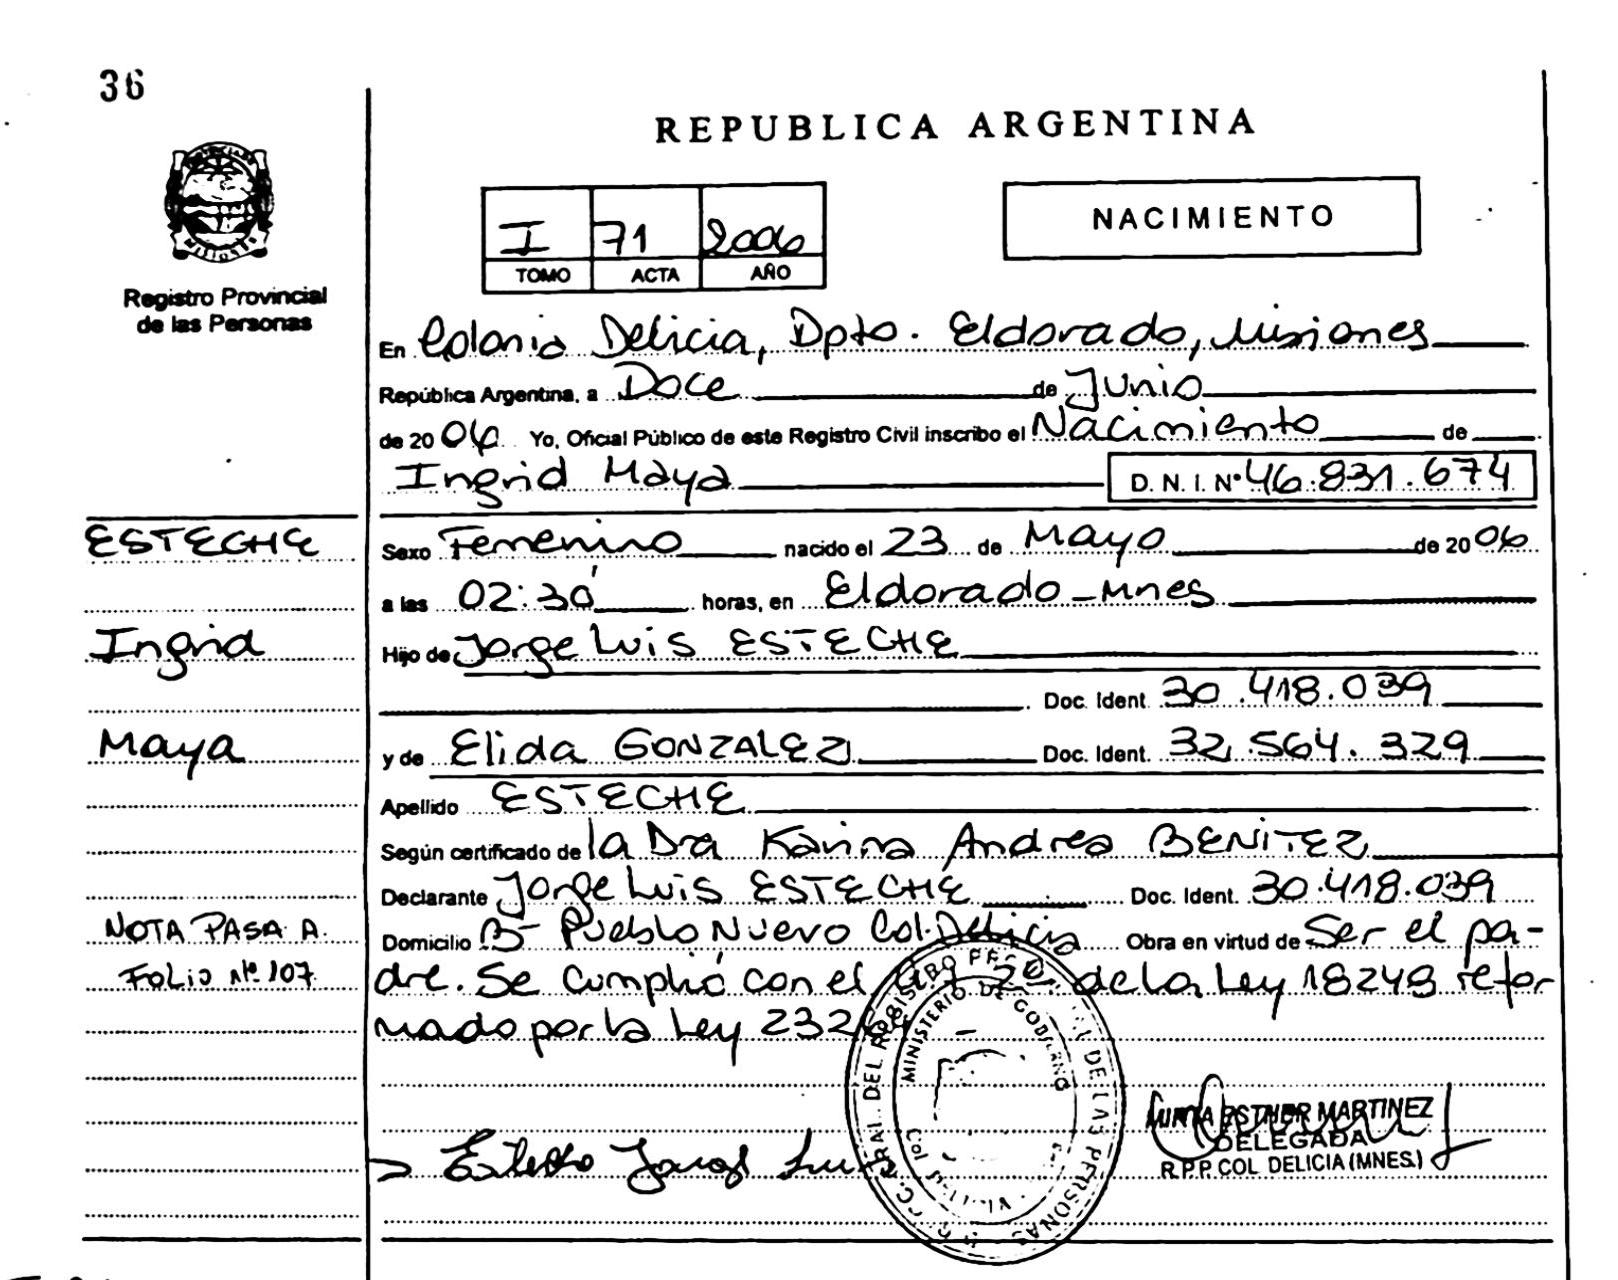 36
REPUBLICA ARGENTINA
I 71 2006
TOMO ACTA AÑO
NACIMIENTO
MISIONES
Registro Provincial
de las Personas
En Colonia Delicia, Dpto. Eldorado, Misiones
República Argentina, a Doce de Junio
de 2006 Yo, Oficial Público de este Registro Civil inscribo el Nacimiento de
Ingrid Maya D. N. I. Nº 46.831.674
ESTECHE
Sexo Femenino nacido el 23 de Mayo de 2006
a las 02:30' horas, en Eldorado-Mnes
Ingrid
Hijo de Jorge Luis ESTECHE
Doc. Ident. 30.418.039
Maya
y de Elida GONZALEZ Doc. Ident. 32.564.329
Apellido ESTECHE
Según certificado de la Dra Karina Andrea BENITEZ
Declarante Jorge Luis ESTECHE Doc. Ident. 30.418.039
NOTA PASA A
FOLIO Nº 107
Domicilio Bº Pueblo Nuevo Col. Delicia Obra en virtud de Ser el pa-
dre. Se cumplió con el art 2º de la Ley 18248 refor
mado por la Ley 232
DEL REGISTRO PROVINCIAL DE LAS PERSONAS
MINISTERIO DE GOBIERNO
MIRTA ESTHER MARTINEZ
DELEGADA
R.P.P. COL. DELICIA (MNES.)